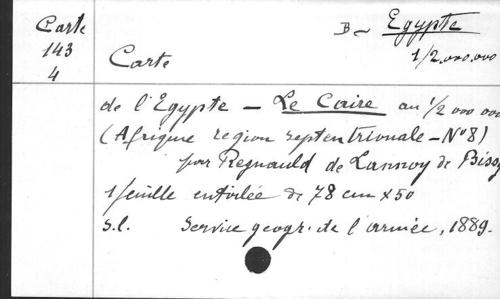 Carte
143
4
B ~ Egypte
1/2.000.000
Carte
de l'Egypte - Le Caire au 1/2 000 000
(Afrique region septentrionale - N° 8)
par Regnauld de Lannoy de Bissy
1 feuille entoilée de 78 cm x 50
s.l. Service géogr. de l'armée, 1889.